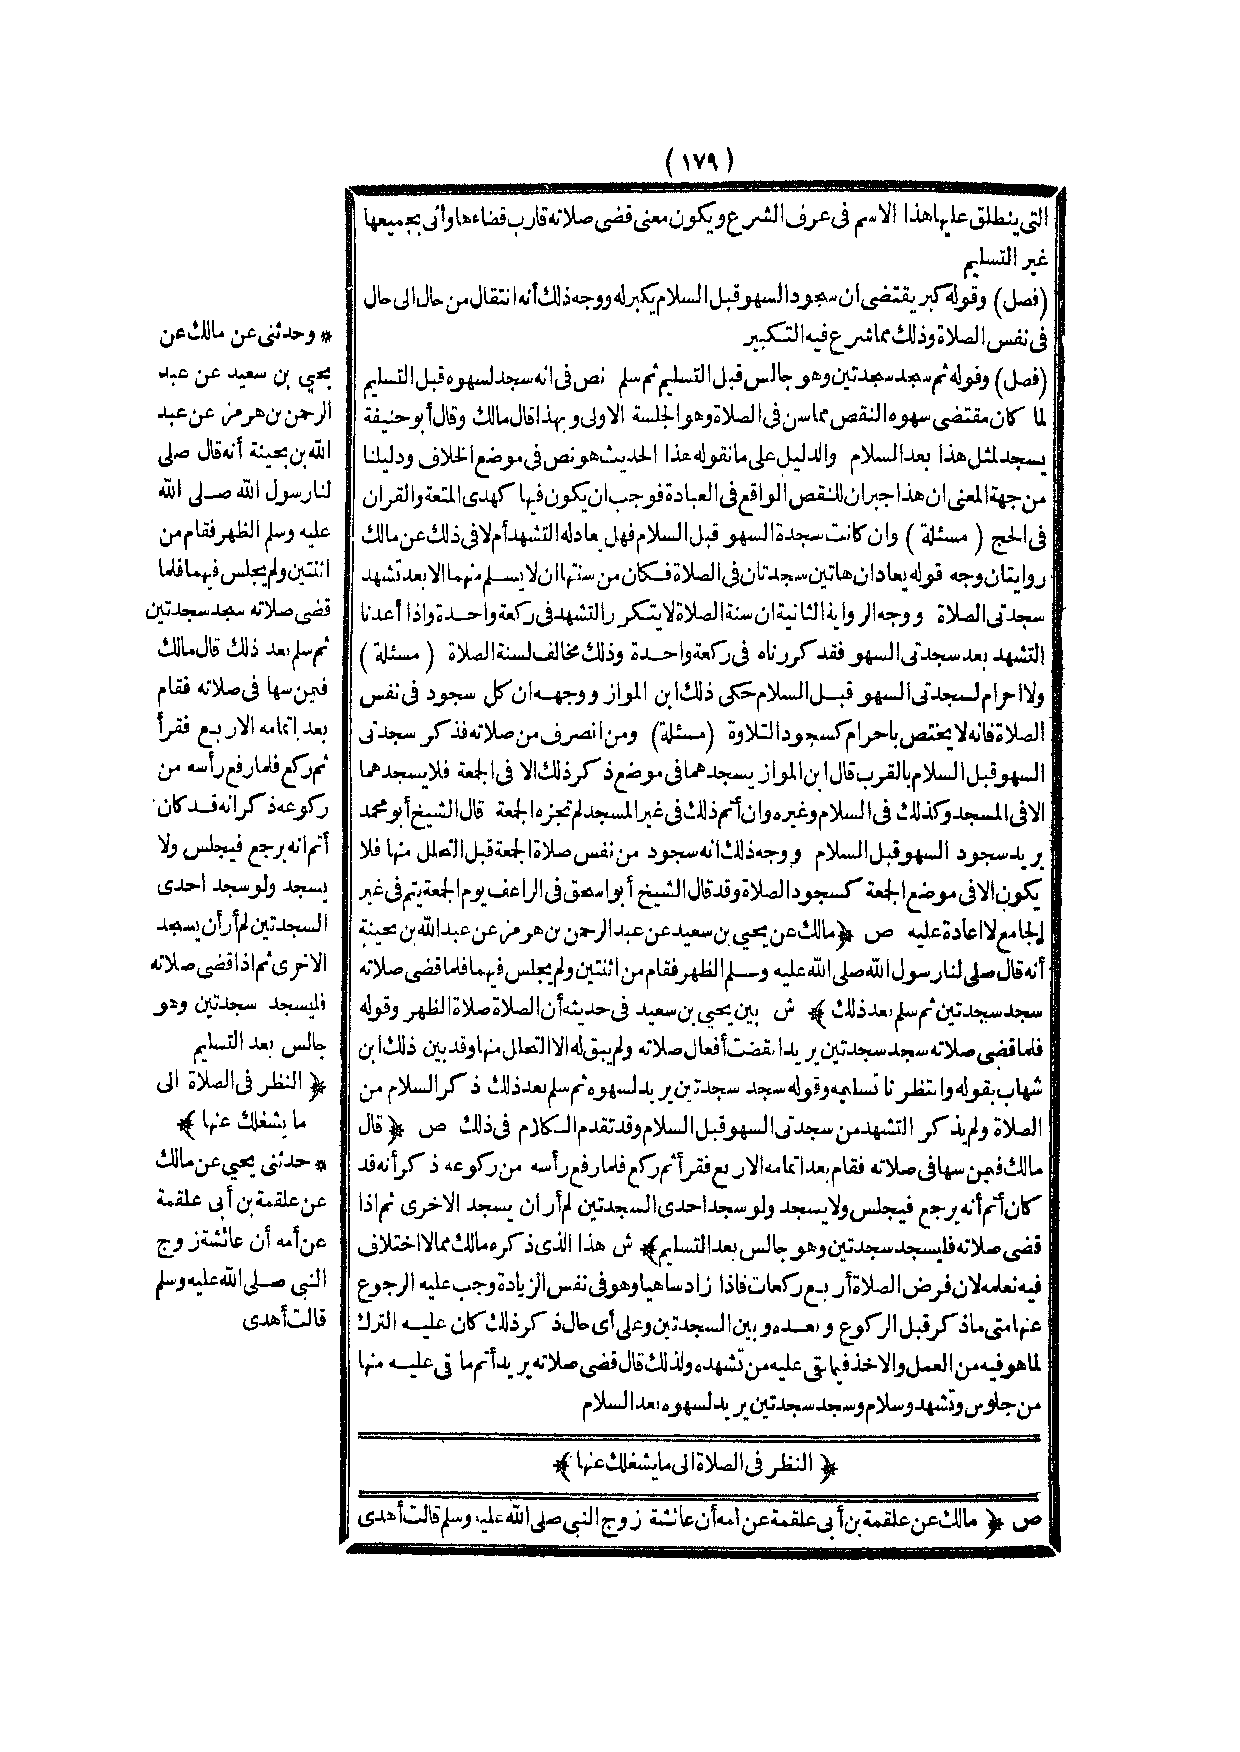 (١٧٩)
التى ينطلق عليها هذا الاسم فى عرف الشرع ويكون معنى قضى صلاته قارب قضاءها وأتى بجميعها
غير التسليم
(فصل) وقوله كبر يقتضى ان سجود السهو قبل السلام يكبر له ووجه ذلك أنه انتقال من حال الى حال
فى نفس الصلاة وذلك مما شرع فيه التكبير
(فصل) وقوله ثم سجد سجدتين وهو جالس قبل التسليم ثم سلم نص فى انه سجد لسهوه قبل التسليم
لما كان مقتضى سهوه النقص مما سن فى الصلاة وهو الجلسة الاولى وبهذا قال مالك وقال أبو حنيفة
يسجد لمثل هذا بعد السلام والدليل على ما نقوله هذا الحديث هو نص فى موضع الخلاف ودليلنا
من جهة المعنى ان هذا جبران للنقص الواقع فى العبادة فوجب ان يكون فيها كهدى المتعة والقران
فى الحج (مسئلة) وان كانت سجدة السهو قبل السلام فهل يعاد له التشهد أم لا فى ذلك عن مالك
روايتان وجه قوله يعاد ان هاتين سجدتان فى الصلاة فكان من سنتها ان لا يسلم منهما الا بعد تشهد
سجدتى الصلاة ووجه الرواية الثانية ان سنة الصلاة لا يتكرر التشهد فى ركعة واحدة واذا أعدنا
التشهد بعد سجدتى السهو فقد كررناه فى ركعة واحدة وذلك مخالف لسنة الصلاة (مسئلة)
ولا احرام لسجدتى السهو قبل السلام حكى ذلك ابن المواز ووجهه ان كل سجود فى نفس
الصلاة فانه لا يختص باحرام كسجود التلاوة (مسئلة) ومن انصرف من صلاته فذكر سجدتى
السهو قبل السلام بالقرب قال ابن المواز يسجدهما فى موضع ذكر ذلك الا فى الجمعة فلا يسجدهما
الا فى المسجد وكذلك فى السلام وغيره وان أتم ذلك فى غير المسجد لم تجزه الجمعة قال الشيخ أبو محمد
يريد سجود السهو قبل السلام ووجه ذلك انه سجود من نفس صلاة الجمعة قبل التحلل منها فلا
يكون الا فى موضع الجمعة كسجود الصلاة وقد قال الشيخ أبو اسحق فى الراعف يوم الجمعة يتم فى غير
الجامع لا اعادة عليه ص ﴿مالك عن يحيى بن سعيد عن عبد الرحمن بن هرمز عن عبد الله بن بحينة
أنه قال صلى لنا رسول الله صلى الله عليه وسلم الظهر فقام من اثنتين ولم يجلس فيهما فلما قضى صلاته
سجد سجدتين ثم سلم بعد ذلك﴾ ش بين يحيى بن سعيد فى حديثه أن الصلاة صلاة الظهر وقوله
فلما قضى صلاته سجد سجدتين يريد انقضت أفعال صلاته ولم يبق له الا التحلل منها وقد بين ذلك ابن
شهاب بقوله وانتظرنا تسليمه وقوله سجد سجدتين يريد لسهوه ثم سلم بعد ذلك ذكر السلام من
الصلاة ولم يذكر التشهد من سجدتى السهو قبل السلام وقد تقدم الكلام فى ذلك ص ﴿قال
مالك فيمن سها فى صلاته فقام بعد اتمامه الاربع فقرأ ثم ركع فلما رفع رأسه من ركوعه ذكر أنه قد
كان أتم أنه يرجع فيجلس ولا يسجد ولو سجد احدى السجدتين لم أر أن يسجد الاخرى ثم اذا
قضى صلاته فليسجد سجدتين وهو جالس بعد التسليم﴾ ش هذا الذى ذكره مالك مما لا اختلاف
فيه نعلمه لان فرض الصلاة أربع ركعات فاذا زاد ساهيا وهو فى نفس الزيادة وجب عليه الرجوع
عنها متى ما ذكر قبل الركوع وبعده وبين السجدتين وعلى أى حال ذكر ذلك كان عليه الترك
لما هو فيه من العمل والاخذ فيما بقى عليه من تشهده ولذلك قال قضى صلاته يريد أتم ما بقى عليه منها
من جلوس وتشهد وسلام وسجد سجدتين يريد لسهوه بعد السلام
﴿النظر فى الصلاة الى ما يشغلك عنها﴾
ص ﴿مالك عن علقمة بن أبى علقمة عن أمه أن عائشة زوج النبى صلى الله عليه وسلم قالت أهدى
* وحدثنى عن مالك عن
يحيى بن سعيد عن عبد
الرحمن بن هرمز عن عبد
الله بن بحينة أنه قال صلى
لنا رسول الله صلى الله
عليه وسلم الظهر فقام من
اثنتين ولم يجلس فيهما فلما
قضى صلاته سجد سجدتين
ثم سلم بعد ذلك قال مالك
فيمن سها فى صلاته فقام
بعد اتمامه الاربع فقرأ
ثم ركع فلما رفع رأسه من
ركوعه ذكر انه قد كان
أتم انه يرجع فيجلس ولا
يسجد ولو سجد احدى
السجدتين لم أر أن يسجد
الاخرى ثم اذا قضى صلاته
فليسجد سجدتين وهو
جالس بعد التسليم
﴿النظر فى الصلاة الى
ما يشغلك عنها﴾
* حدثنى يحيى عن مالك
عن علقمة بن أبى علقمة
عن أمه أن عائشة زوج
النبى صلى الله عليه وسلم
قالت أهدى